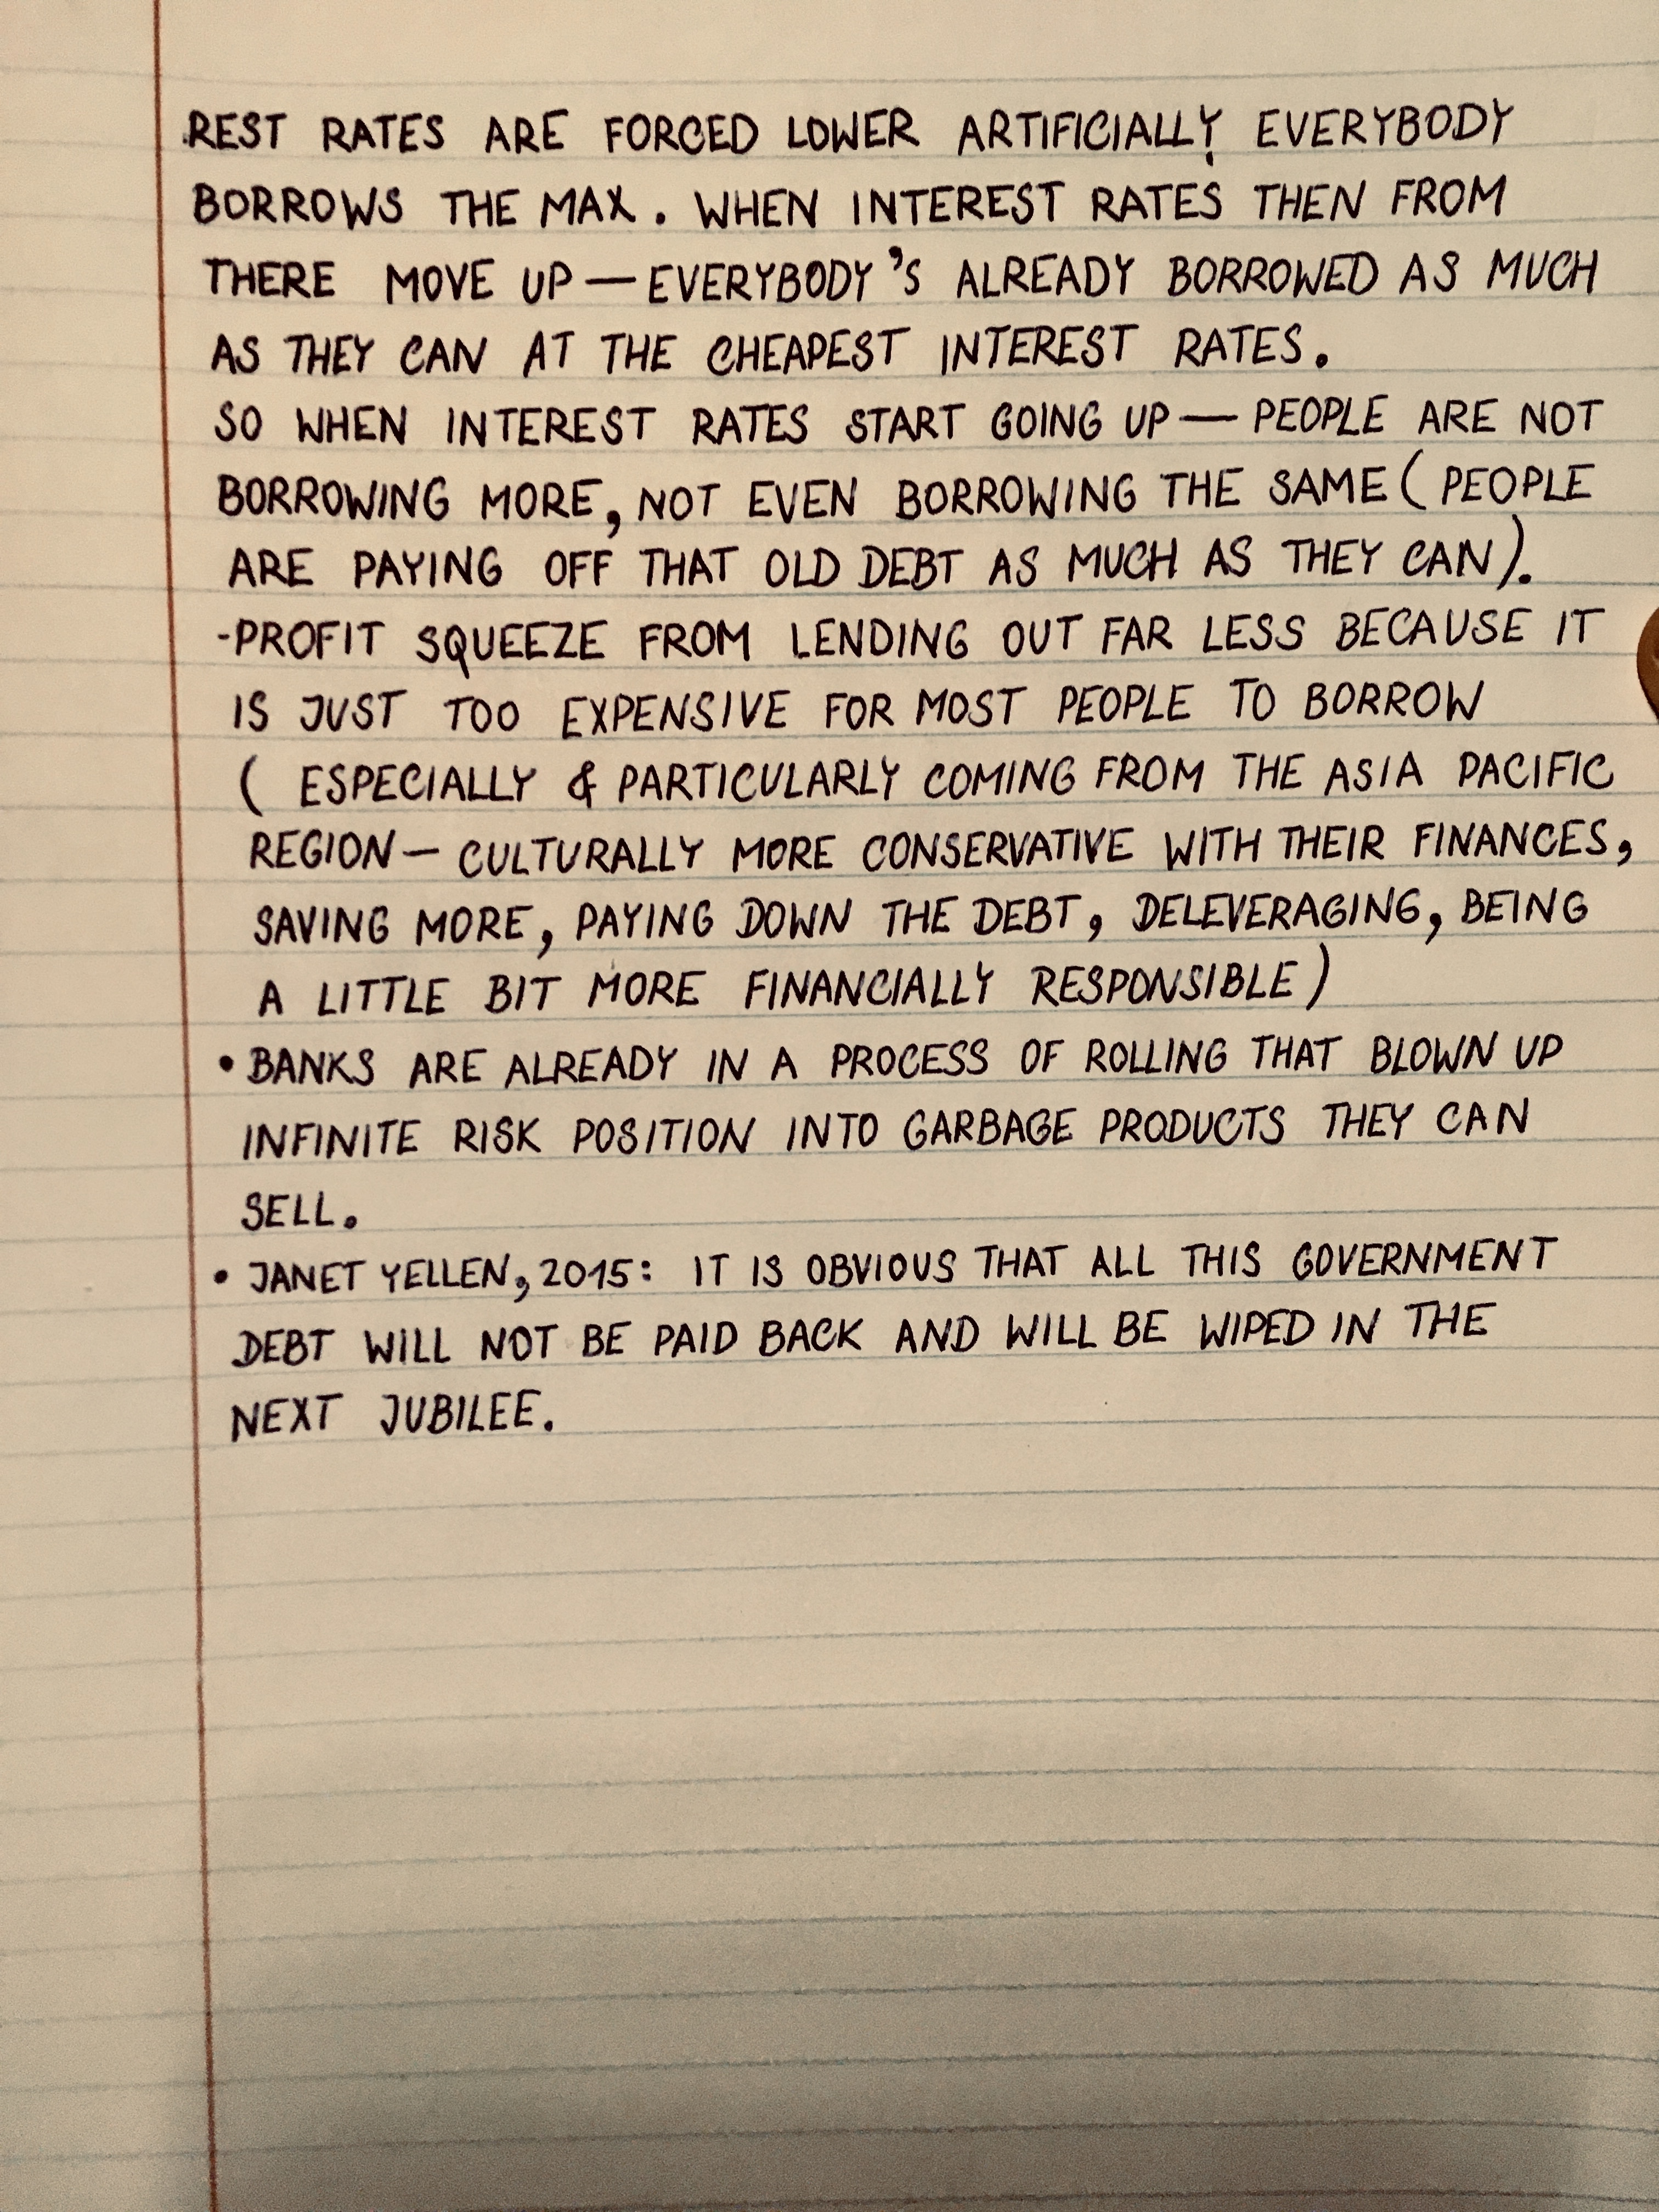 REST RATES ARE FORCED LOWER ARTIFICIALLY, EVERYBODY
BORROWS THE MAX. WHEN INTEREST RATES THEN FROM
THERE MOVE UP — EVERYBODY'S ALREADY BORROWED AS MUCH
AS THEY CAN AT THE CHEAPEST INTEREST RATES.
SO WHEN INTEREST RATES START GOING UP — PEOPLE ARE NOT
BORROWING MORE, NOT EVEN BORROWING THE SAME (PEOPLE
ARE PAYING OFF THAT OLD DEBT AS MUCH AS THEY CAN).
-PROFIT SQUEEZE FROM LENDING OUT FAR LESS BECAUSE IT
IS JUST TOO EXPENSIVE FOR MOST PEOPLE TO BORROW
( ESPECIALLY & PARTICULARLY COMING FROM THE ASIA PACIFIC
REGION — CULTURALLY MORE CONSERVATIVE WITH THEIR FINANCES,
SAVING MORE, PAYING DOWN THE DEBT, DELEVERAGING, BEING
A LITTLE BIT MORE FINANCIALLY RESPONSIBLE)
• BANKS ARE ALREADY IN A PROCESS OF ROLLING THAT BLOWN UP
INFINITE RISK POSITION INTO GARBAGE PRODUCTS THEY CAN
SELL.
• JANET YELLEN, 2015: IT IS OBVIOUS THAT ALL THIS GOVERNMENT
DEBT WILL NOT BE PAID BACK AND WILL BE WIPED IN THE
NEXT JUBILEE.